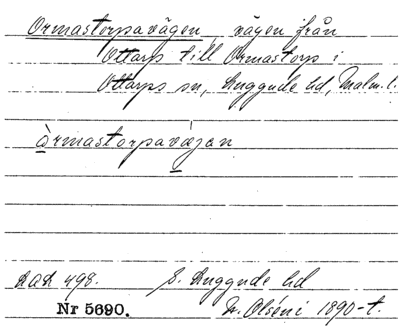 Ormastorpavägen, vägen från
Ottarp till Ormastorp i
Ottarps sn, Luggude hd, Malm. l.
òrmastorpavæjan
LAL 498. S. Luggude hd
Nr 5690. N. Olséni 1890-t.